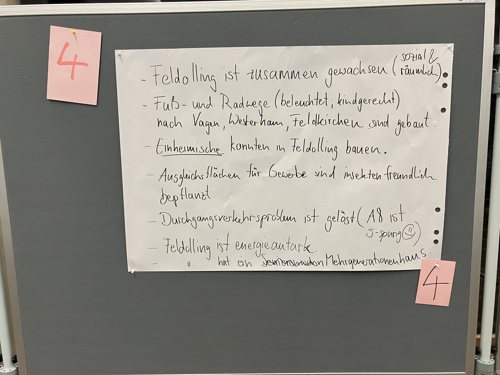 4
- Feldolling ist zusammen gewachsen (sozial & räumlich)
- Fuß- und Radwege (beleuchtet, kindgerecht)
nach Vagen, Westerham, Feldkirchen sind gebaut.
- Einheimische konnten in Feldolling bauen.
- Ausgleichsflächen für Gewerbe sind insektenfreundlich
bepflanzt
- Durchgangsverkehrsproblem ist gelöst (A8 ist
-spurig)
- Feldolling ist energieautark
- " hat ein Mehrgenerationenhaus
4